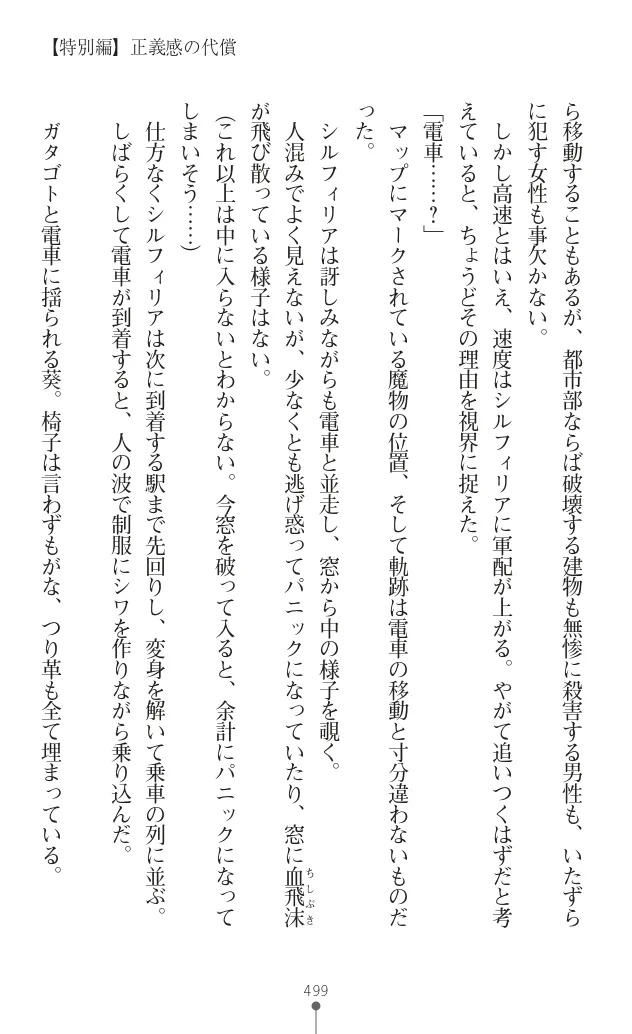 【特別編】正義感の代償
ら移動することもあるが、都市部ならば破壊する建物も無惨に殺害する男性も、いたずら
に犯す女性も事欠かない。
しかし高速とはいえ、速度はシルフィリアに軍配が上がる。やがて追いつくはずだと考
えていると、ちょうどその理由を視界に捉えた。
「電車……？」
マップにマークされている魔物の位置、そして軌跡は電車の移動と寸分違わないものだ
った。
シルフィリアは訝しみながらも電車と並走し、窓から中の様子を覗く。
人混みでよく見えないが、少なくとも逃げ惑ってパニックになっていたり、窓に血飛沫ちしぶき
が飛び散っている様子はない。
（これ以上は中に入らないとわからない。今窓を破って入ると、余計にパニックになって
しまいそう……）
仕方なくシルフィリアは次に到着する駅まで先回りし、変身を解いて乗車の列に並ぶ。
しばらくして電車が到着すると、人の波で制服にシワを作りながら乗り込んだ。
ガタゴトと電車に揺られる葵。椅子は言わずもがな、つり革も全て埋まっている。
499